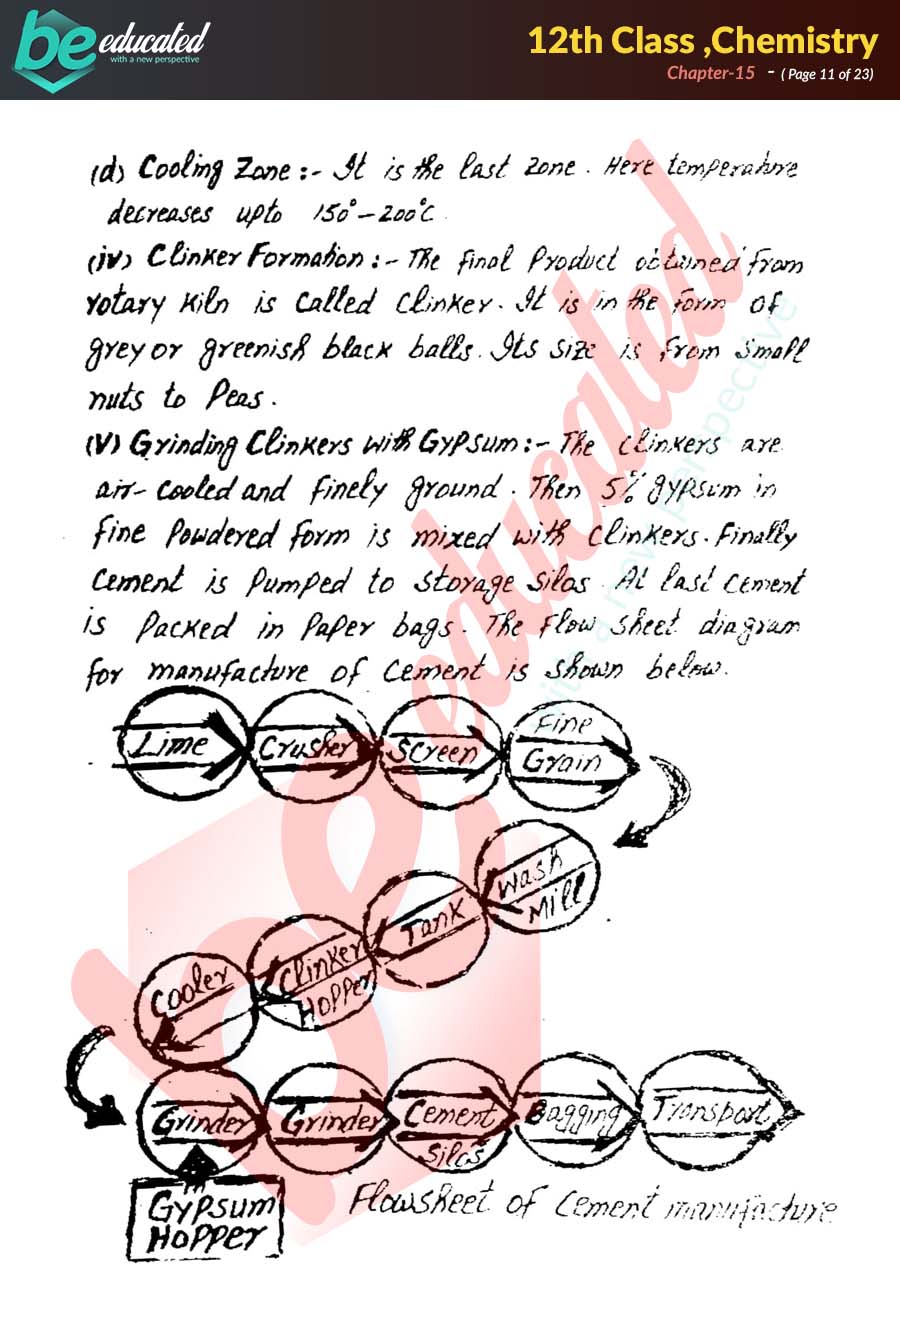 be educated
with a new perspective
12th Class ,Chemistry
Chapter-15 - ( Page 11 of 23)
(d) Cooling Zone :- It is the last zone. Here temperature
decreases upto 150°-200°C.
(iv) Clinker Formation :- The final Product obtained from
rotary Kiln is called Clinker. It is in the form of
grey or greenish black balls. Its size is from small
nuts to Peas.
(V) Grinding Clinkers with Gypsum :- The clinkers are
air-cooled and finely ground. Then 5% gypsum in
fine powdered form is mixed with clinkers. Finally
cement is pumped to storage silos. At last cement
is packed in paper bags. The flow sheet diagram
for manufacture of cement is shown below.
Lime Crusher Screen Fine Grain
Wash Mill
Tank
Clinker Hopper
Cooler
Grinder Grinder Cement Silos Bagging Transport
Gypsum Hopper
Flowsheet of cement manufacture
be educated
with a new perspective